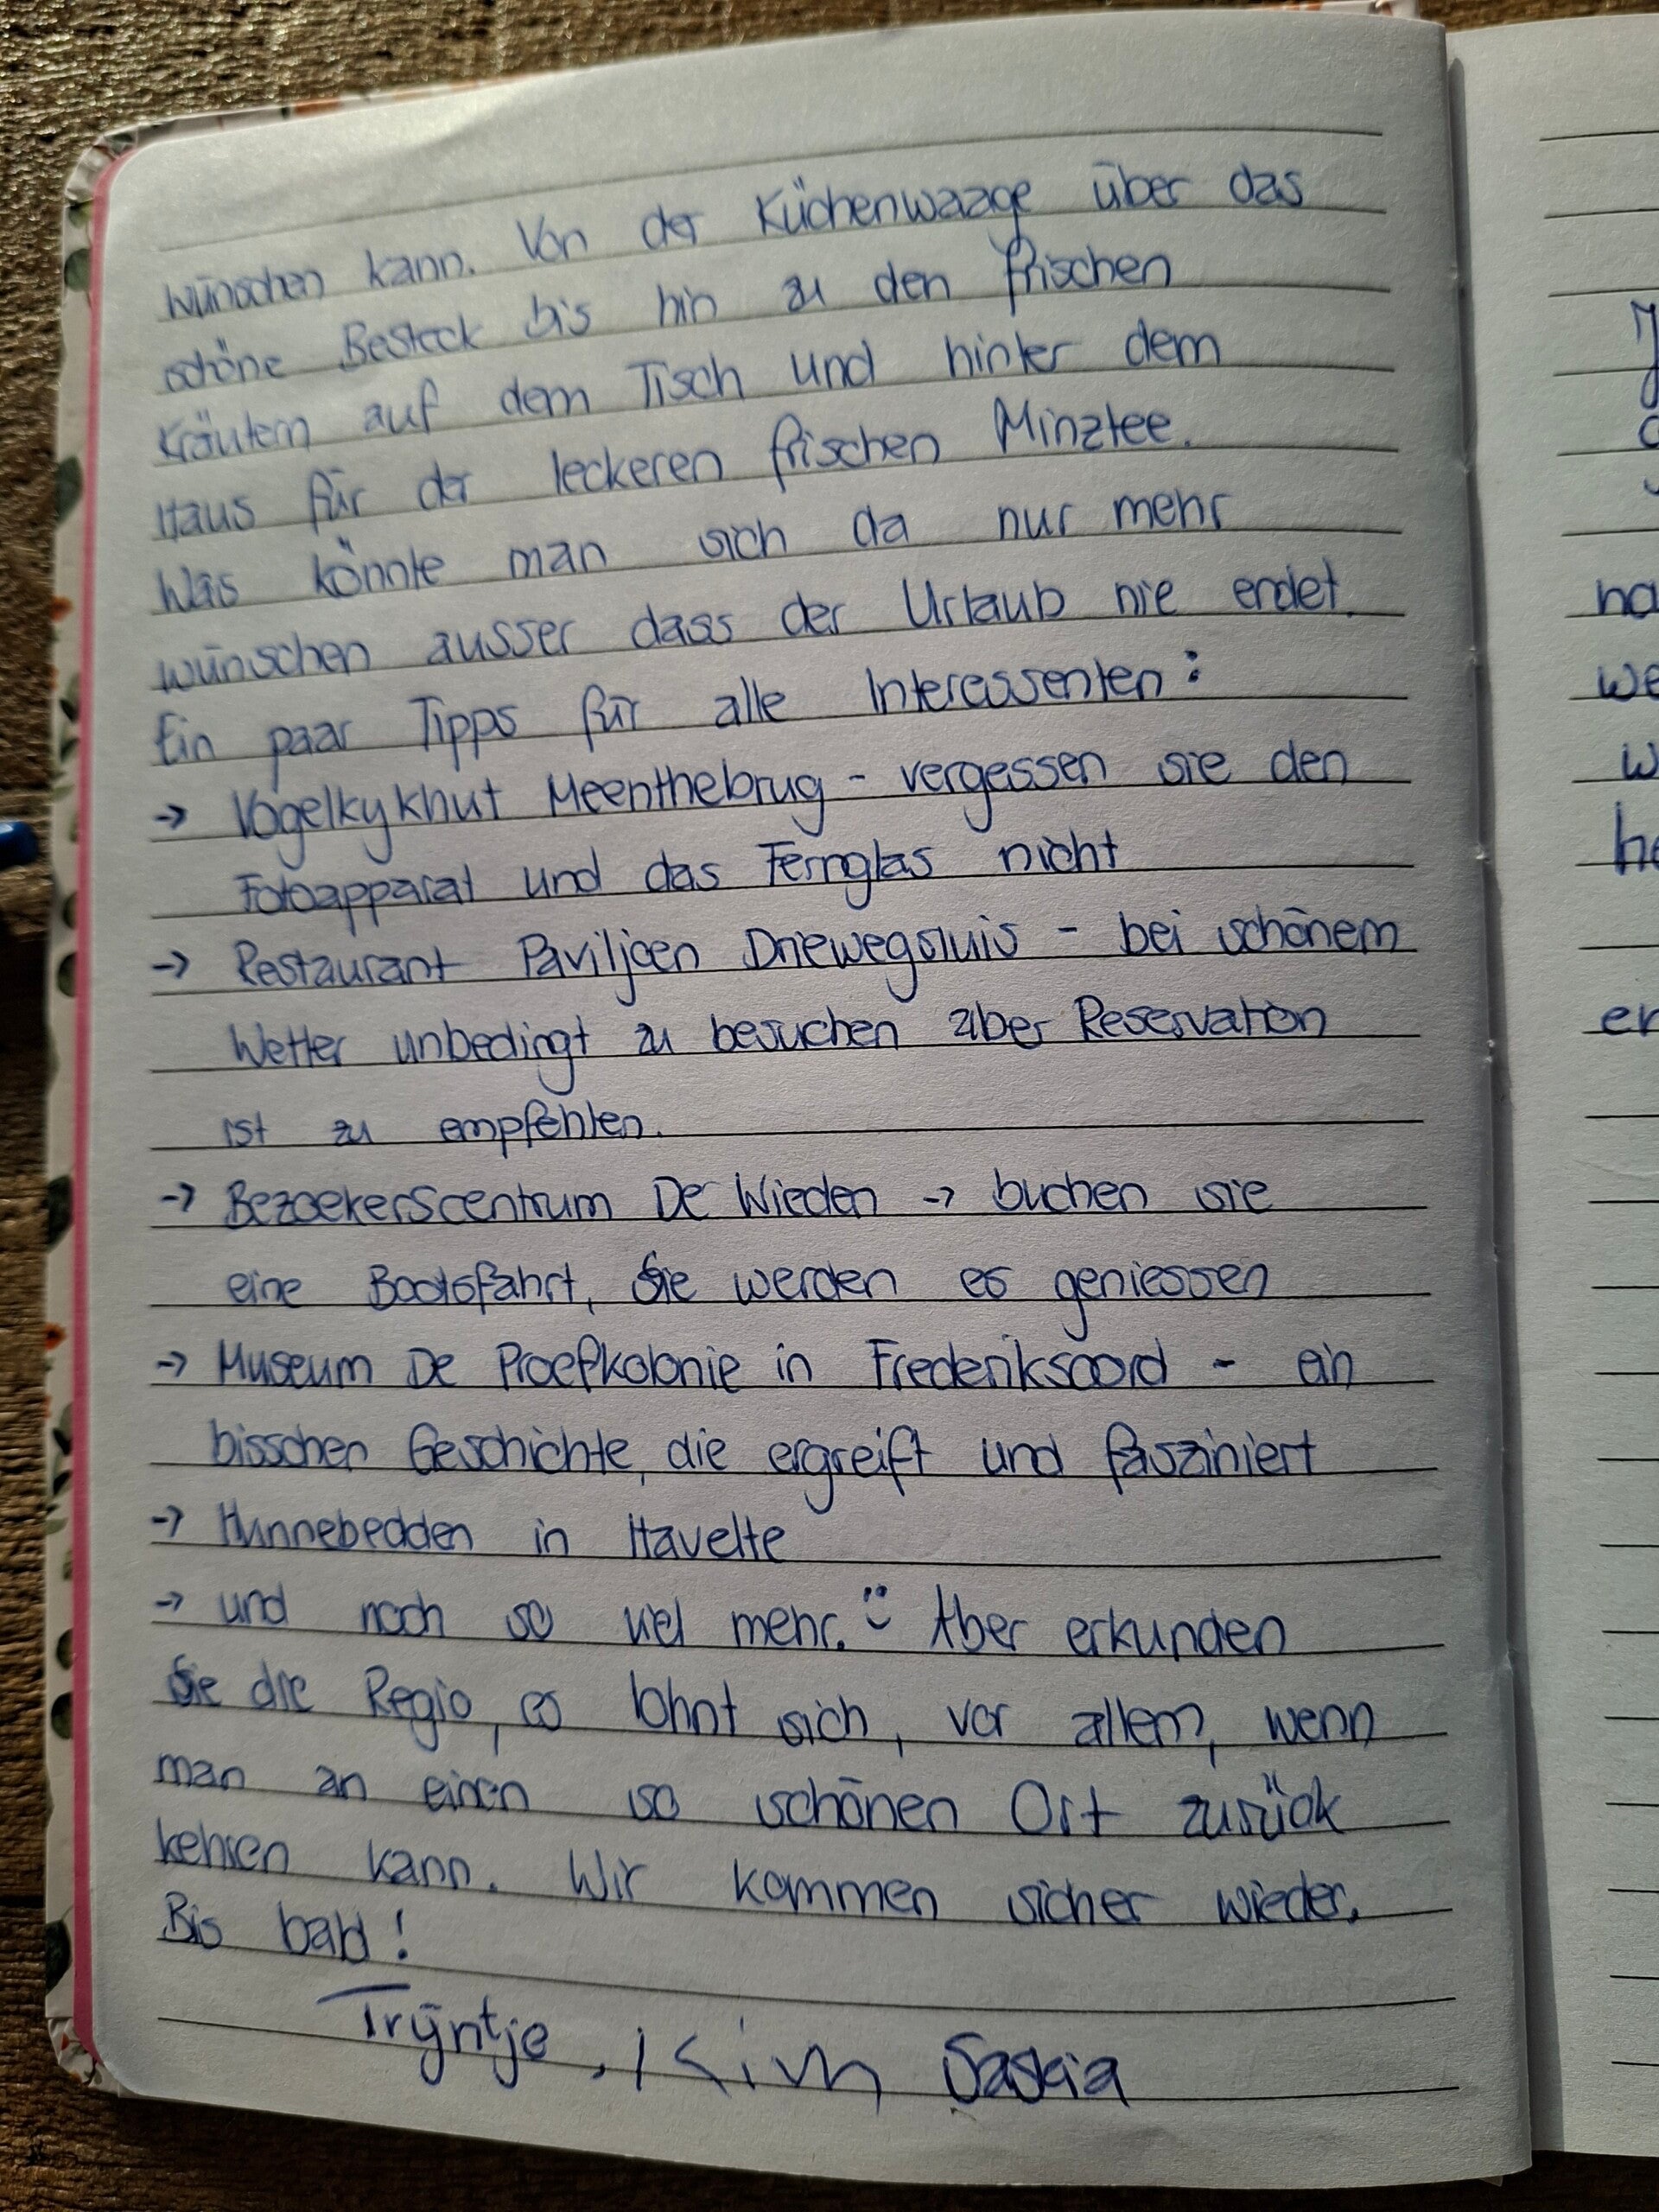 wünschen kann. Von der Küchenwaage über das
schöne Besteck bis hin zu den frischen
Kräutern auf dem Tisch und hinter dem
Haus für der leckeren frischen Minztee.
Was könnte man sich da nur mehr
wünschen ausser dass der Urlaub nie endet.
Ein paar Tipps für alle Interessenten:
→ Vogelkykhut Meenthebrug - vergessen sie den
Fotoapparat und das Fernglas nicht
→ Restaurant Paviljoen Driewegsluis - bei schönem
Wetter unbedingt zu besuchen aber Reservation
ist zu empfehlen.
→ Bezoekerscentrum De Wieden → buchen sie
eine Bootsfahrt, Sie werden es geniessen
→ Museum De Proefkolonie in Frederiksoord - ein
bisschen Geschichte, die ergreift und fasziniert
→ Hunnebedden in Havelte
→ und noch so viel mehr. Aber erkunden
Sie die Regio, es lohnt sich, vor allem, wenn
man an einen so schönen Ort zurück
kehren kann. Wir kommen sicher wieder.
Bis bald!
Tryntje, Kim Saskia
na
we
w
he
er